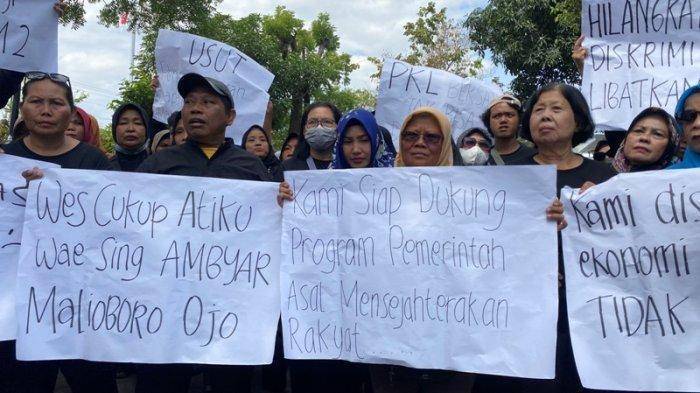 12
USUT
PKL
HILANGKA
DISKRIMI
LIBATKA
Wes Cukup Atiku
Wae Sing AMBYAR
Malioboro Ojo
Kami Siap Dukung
Program Pemerintah
Asal Mensejahterakan
Rakyat.......
Kami dis
ekonomi
TIDAK